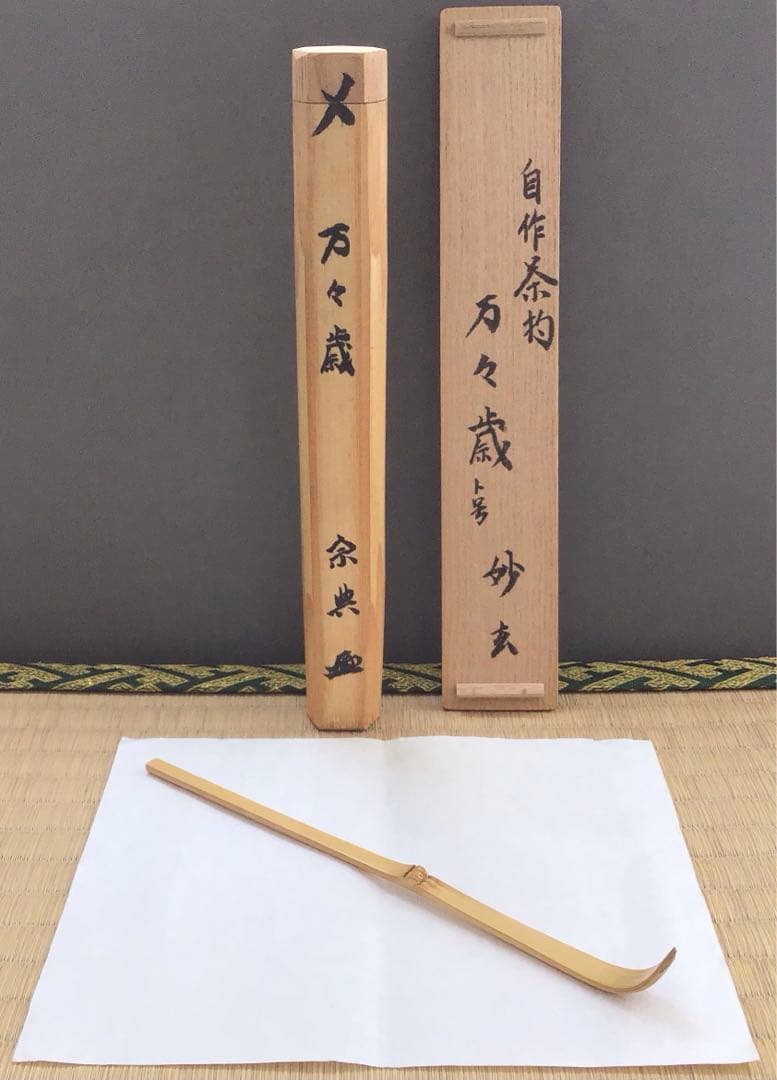 〆
万々歳
宗典
自作茶杓
万々歳
ト号
妙玄